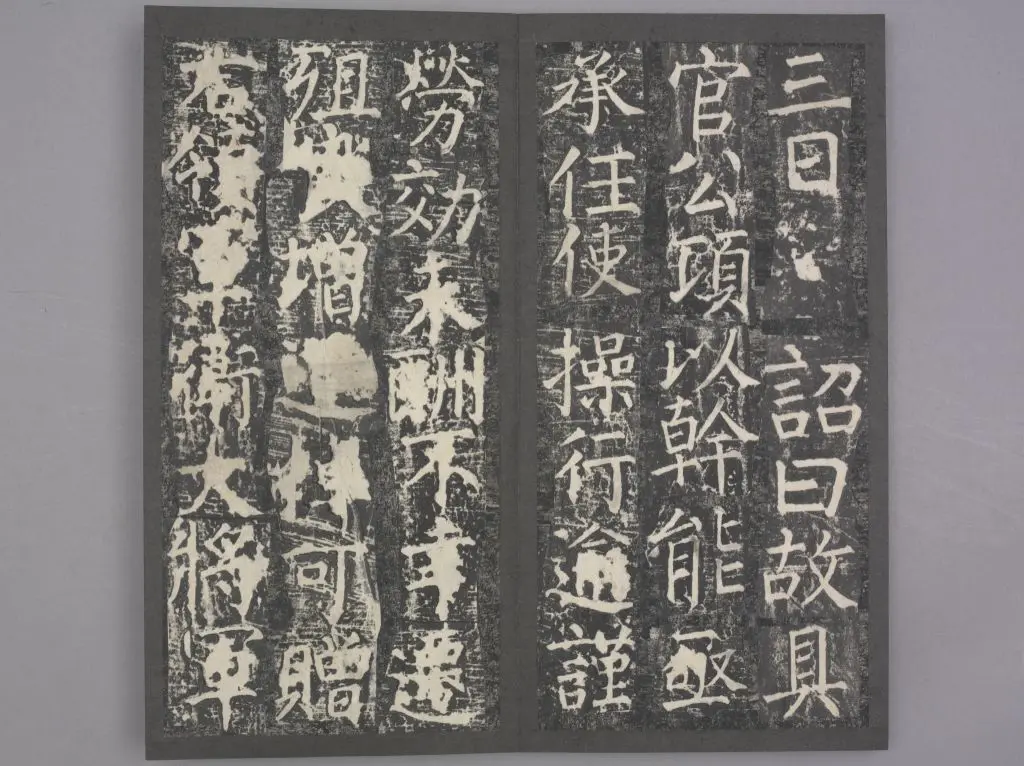 三日 詔曰故具
官公以幹能亟
承任使操行逾謹
勞効未酬不幸遷
殂增悼可贈
右領軍衛大將軍